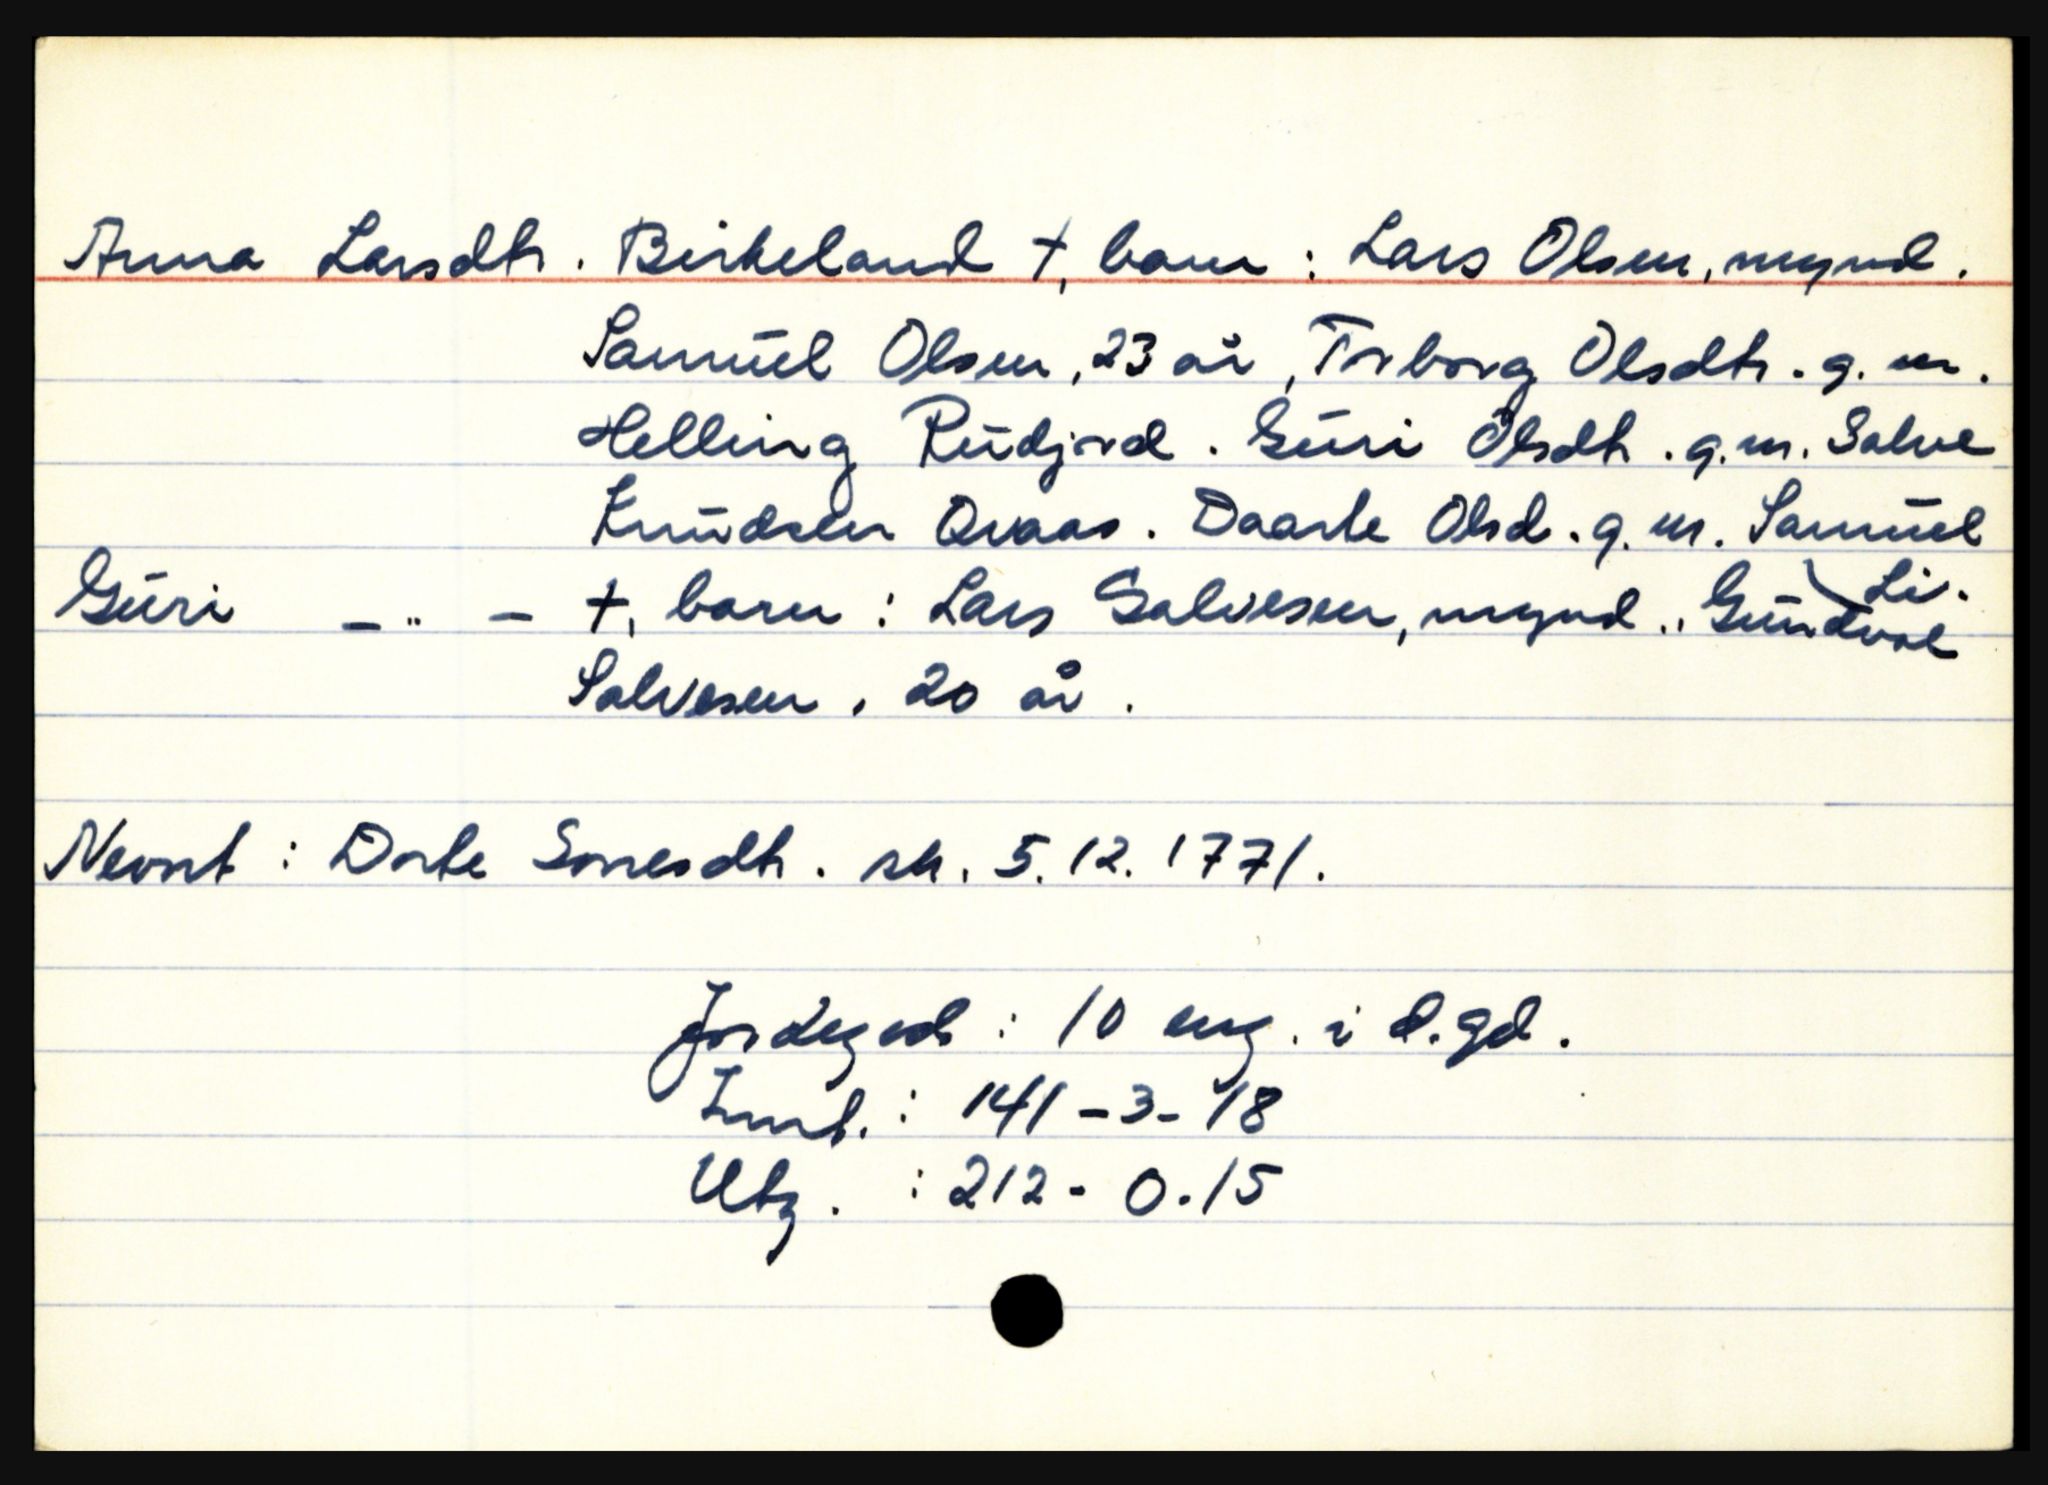 Anna Larsdtr. Birkeland †, barn : Lars Olsen, mynd.
Samuel Olsen, 23 år, Torborg Olsdtr. g. m.
Helling Rudjord. Guri Olsdtr. g. m. Salve
Knudsen Qvaas. Daarte Olsd. g. m. Samuel
Li.
Guri — " — †, barn : Lars Salvesen, mynd., Gundval
Salvesen, 20 år.
Nevnt : Dorte Sonesdtr. sk. 5.12.1771.
Jordegods : 10 eng. i d. gd.
Innb. : 141 - 3 - 18
Utg. : 212 - 0 - 15